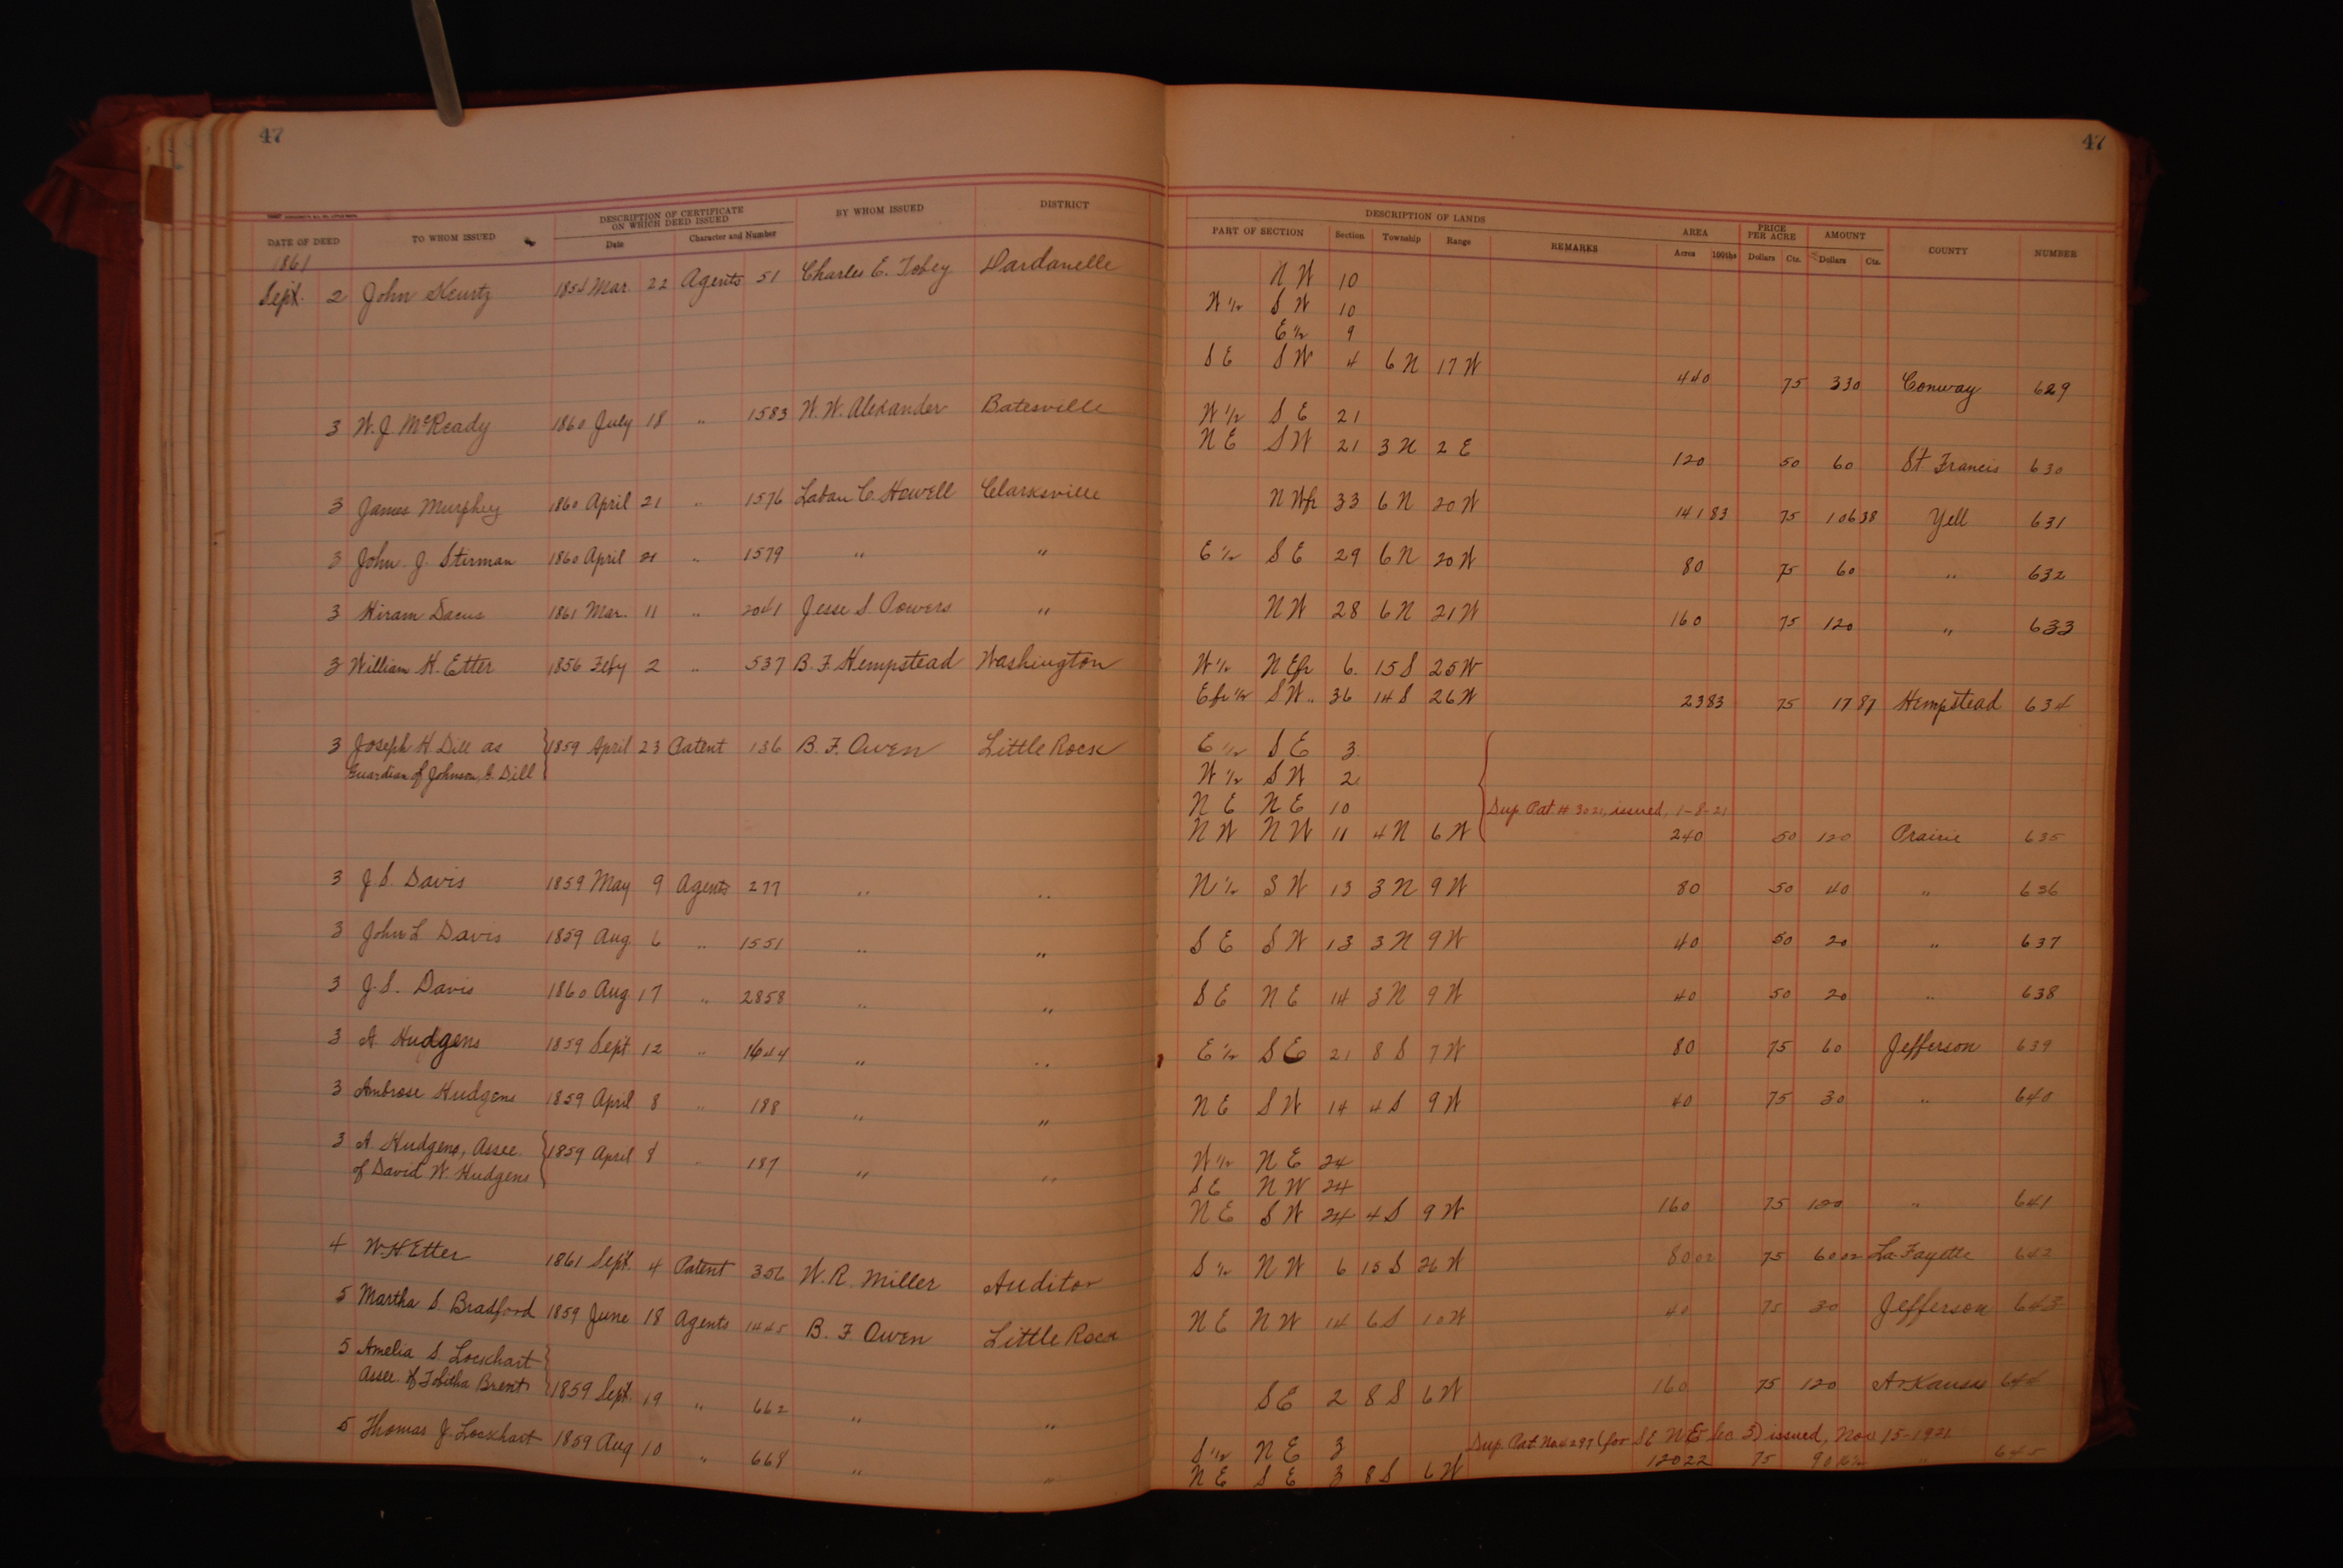 47
47
DATE OF DEED TO WHOM ISSUED DESCRIPTION OF CERTIFICATE ON WHICH DEED ISSUED Date Character and Number BY WHOM ISSUED DISTRICT DESCRIPTION OF LANDS PART OF SECTION Section Township Range REMARKS AREA Acres 100ths PRICE PER ACRE Dollars Cts. AMOUNT Dollars Cts. COUNTY NUMBER
1861
Sept. 2 John Kurtz 1854 Mar. 22 Agents 51 Charles E. Tobey Dardanelle N W 10
W 1/2 S W 10
E 1/2 9
S E S W 4 6 N 17 W 440 75 330 Conway 629
3 W. J. McReady 1860 July 18 " 1583 W. W. Alexander Batesville W 1/2 S E 21
N E S W 21 3 N 2 E 120 50 60 St Francis 630
3 James Murphey 1860 April 21 " 1576 Laban C. Howell Clarksville N W fr 33 6 N 20 W 141 83 75 106 38 Yell 631
3 John J. Stirman 1860 April 21 " 1579 " " E 1/2 S E 29 6 N 20 W 80 75 60 " 632
3 Hiram Dacus 1861 Mar. 11 " 2041 Jesse S. Powers " N W 28 6 N 21 W 160 75 120 " 633
3 William H. Etter 1856 Feby 2 " 537 B. F. Hempstead Washington W 1/2 N E fr 6 15 S 25 W
E fr 1/2 S W " 36 14 S 26 W 23 83 75 17 87 Hempstead 634
3 Joseph H Dill as 1859 April 23 Patent 136 B. F. Owen Little Rock E 1/2 S E 3
Guardian of Johnson G. Dill W 1/2 S W 2
N E N E 10 Dup. Pat. # 3021, issued, 1-8-21
N W N W 11 4 N 6 W 240 50 120 Prairie 635
3 J. S. Davis 1859 May 9 Agents 277 " " N 1/2 S W 13 3 N 9 W 80 50 40 " 636
3 John L Davis 1859 Aug 6 " 1551 " " S E S W 13 3 N 9 W 40 50 20 " 637
3 J. S. Davis 1860 Aug 17 " 2858 " " S E N E 14 3 N 9 W 40 50 20 " 638
3 A. Hudgens 1859 Sept 12 " 1644 " " E 1/2 S E 21 8 S 7 W 80 75 60 Jefferson 639
3 Ambrose Hudgens 1859 April 8 " 188 " " N E S W 14 4 S 9 W 40 75 30 " 640
3 A. Hudgens, Assee. 1859 April 8 " 187 " " W 1/2 N E 24
of David W. Hudgens S E N W 24
N E S W 24 4 S 9 W 160 75 120 " 641
4 W H Etter 1861 Sept. 4 Patent 356 W. R. Miller Auditor S 1/2 N W 6 15 S 26 W 80 02 75 60 02 La Fayette 642
5 Martha S. Bradford 1859 June 18 Agents 1445 B. F Owen Little Rock N E N W 14 6 S 10 W 40 75 30 Jefferson 643
5 Amelia S. Lockhart
Assee. of Tobitha Brent 1859 Sept. 19 " 662 " " S E 2 8 S 6 W 160 75 120 Arkansas 644
5 Thomas J. Lockhart 1859 Aug 10 " 668 " " S 1/2 N E 3 Dup. Pat No 4297 (for SE NE Sec 3) issued, Nov 15-1921
N E S E 3 8 S 6 W 120 22 75 90 " 645